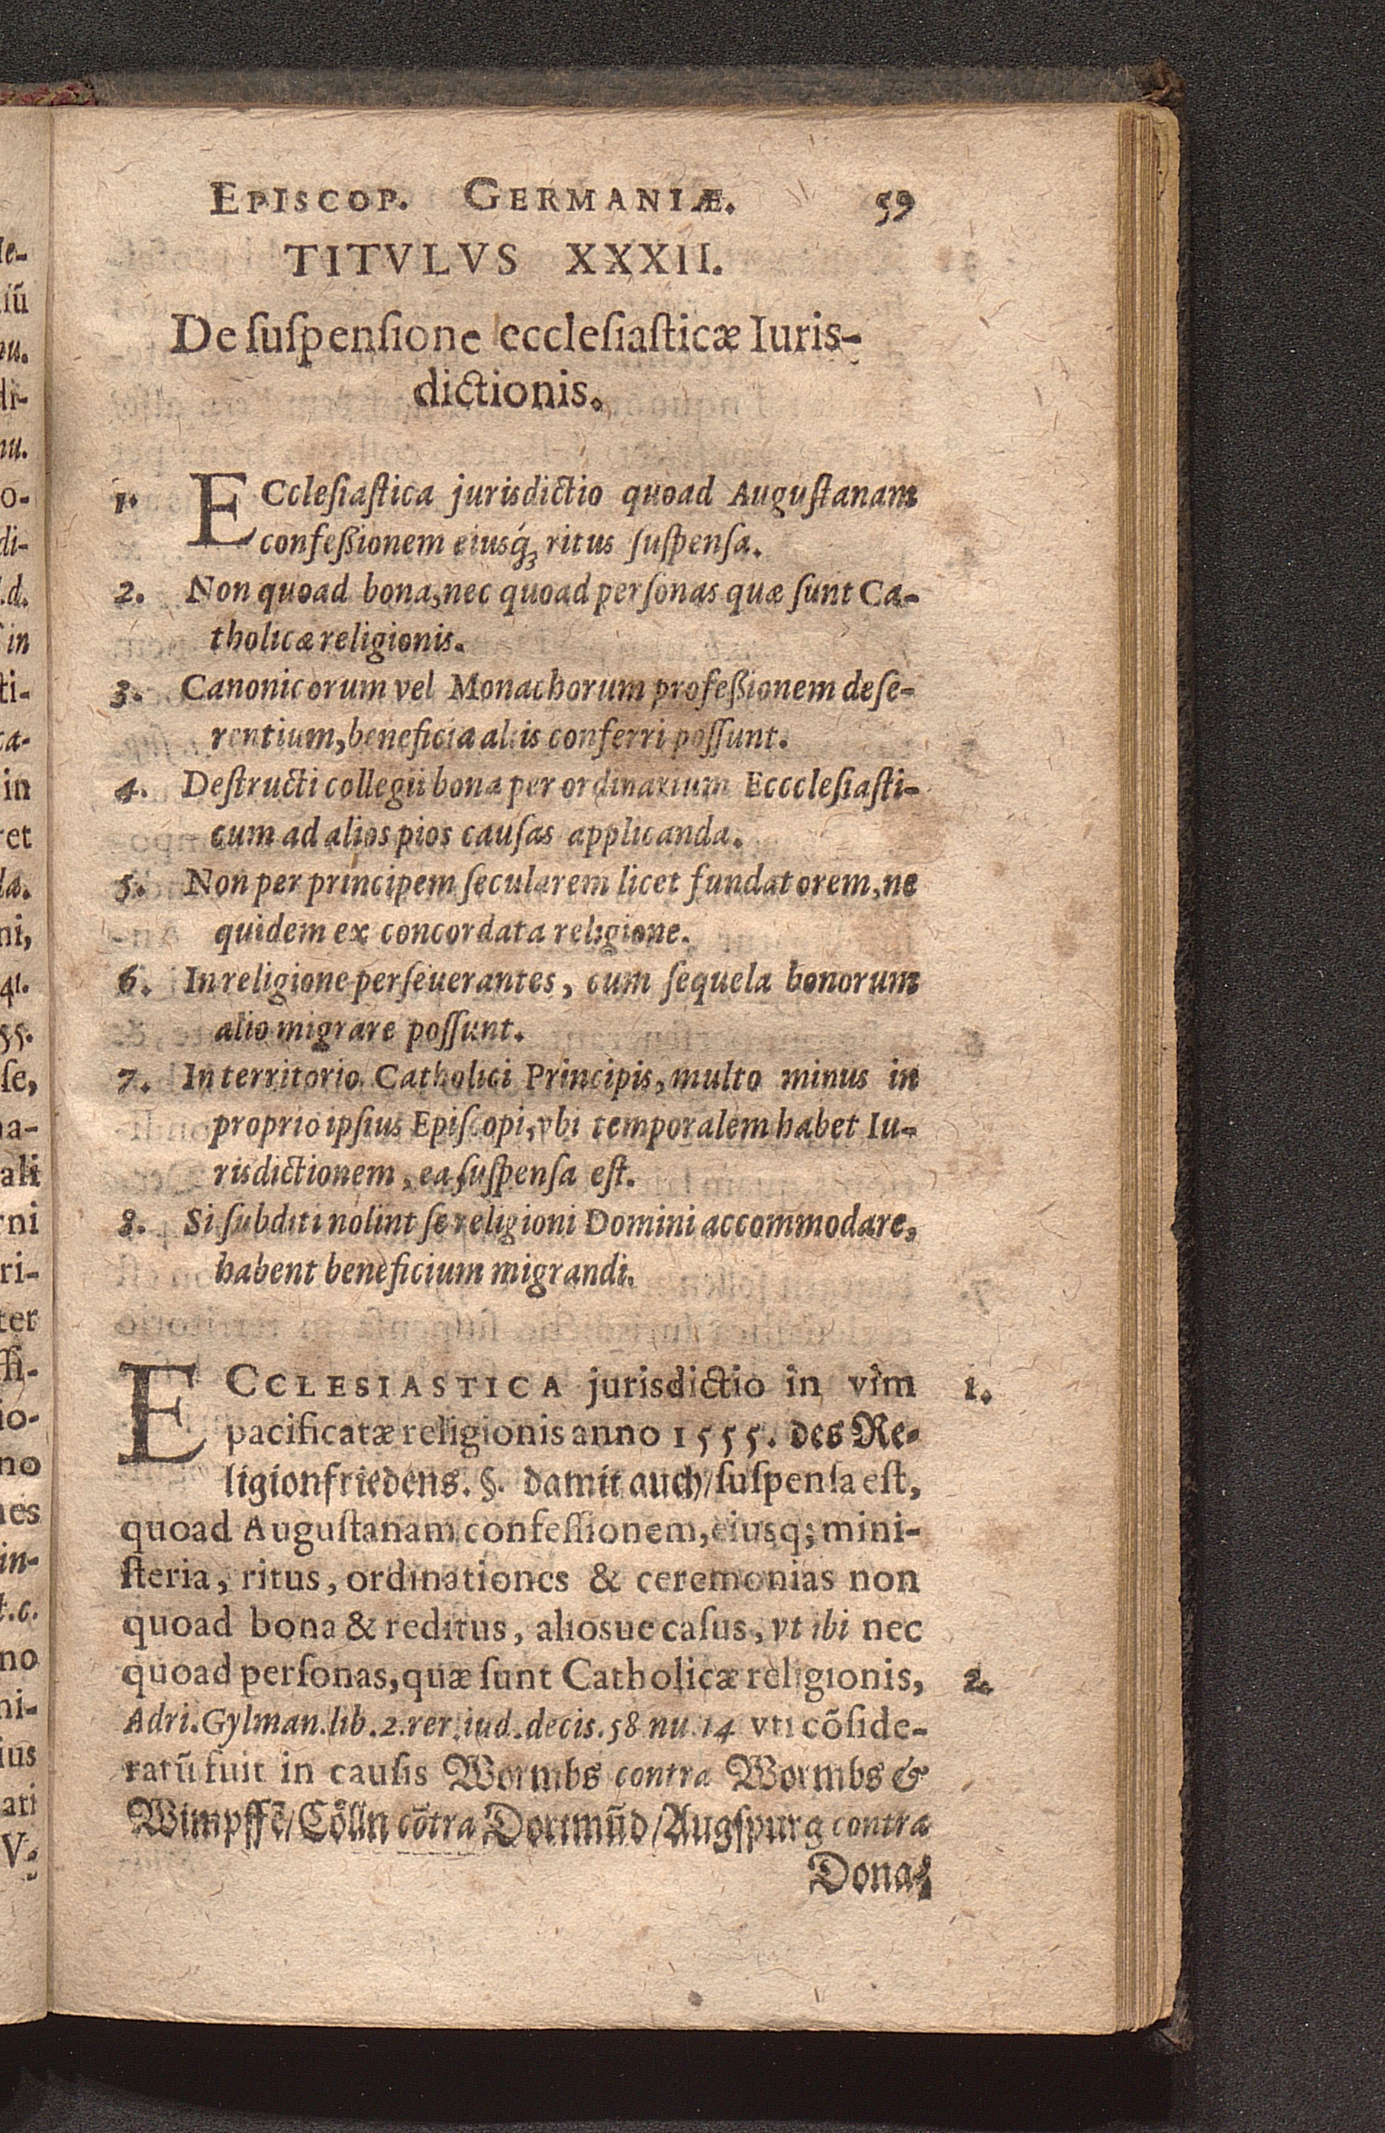 EPISCOP. GERMANIÆ. 59
TITVLVS XXXII.
De ſuſpenſione eccleſiaſticæ Iuris-
dictionis.
1. ECcleſiaſtica jurisdictio quoad Auguſtanam
confeßionem eiusq́ꝫ ritus ſuſpenſa.
2. Non quoad bona, nec quoad perſonas quæ ſunt Ca-
tholicæ religionis.
3. Canonicorum vel Monachorum profeßionem deſe-
rentium, beneficia aliis conferri poſſunt.
4. Deſtructi collegii bona per ordinarium Ecccleſiaſti-
cum ad alios pios cauſas applicanda.
5. Non per principem ſecularem licet fundatorem, ne
quidem ex concordata religione.
6. In religione perſeuerantes, cum ſequela bonorum
alio migrare poſſunt.
7. In territorio Catholici Principis, multo minus in
proprio ipſius Epiſcopi, vbi temporalem habet Iu-
risdictionem, ea ſuſpenſa eſt.
8. Si ſubditi nolint ſe religioni Domini accommodare,
habent beneficium migrandi.
ECCLESIASTICA jurisdictio in vim 1.
pacificatæ religionis anno 1555. des Re-
ligionfriedens. §. damit auch/ ſuſpenſa eſt,
quoad Auguſtanam confeſſionem, eiusq; mini-
ſteria, ritus, ordinationes & ceremonias non
quoad bona & reditus, aliosue caſus, vt ibi nec
quoad perſonas, quæ ſunt Catholicæ religionis, 2.
Adri. Gylman. lib. 2. rer. iud. decis. 58 nu. 14 vti cõſide-
ratũ fuit in cauſis Wormbs contra Wormbs &
Wimpffẽ/ Cölln cõtra Dortmũd/ Augſpurg contra
Dona-